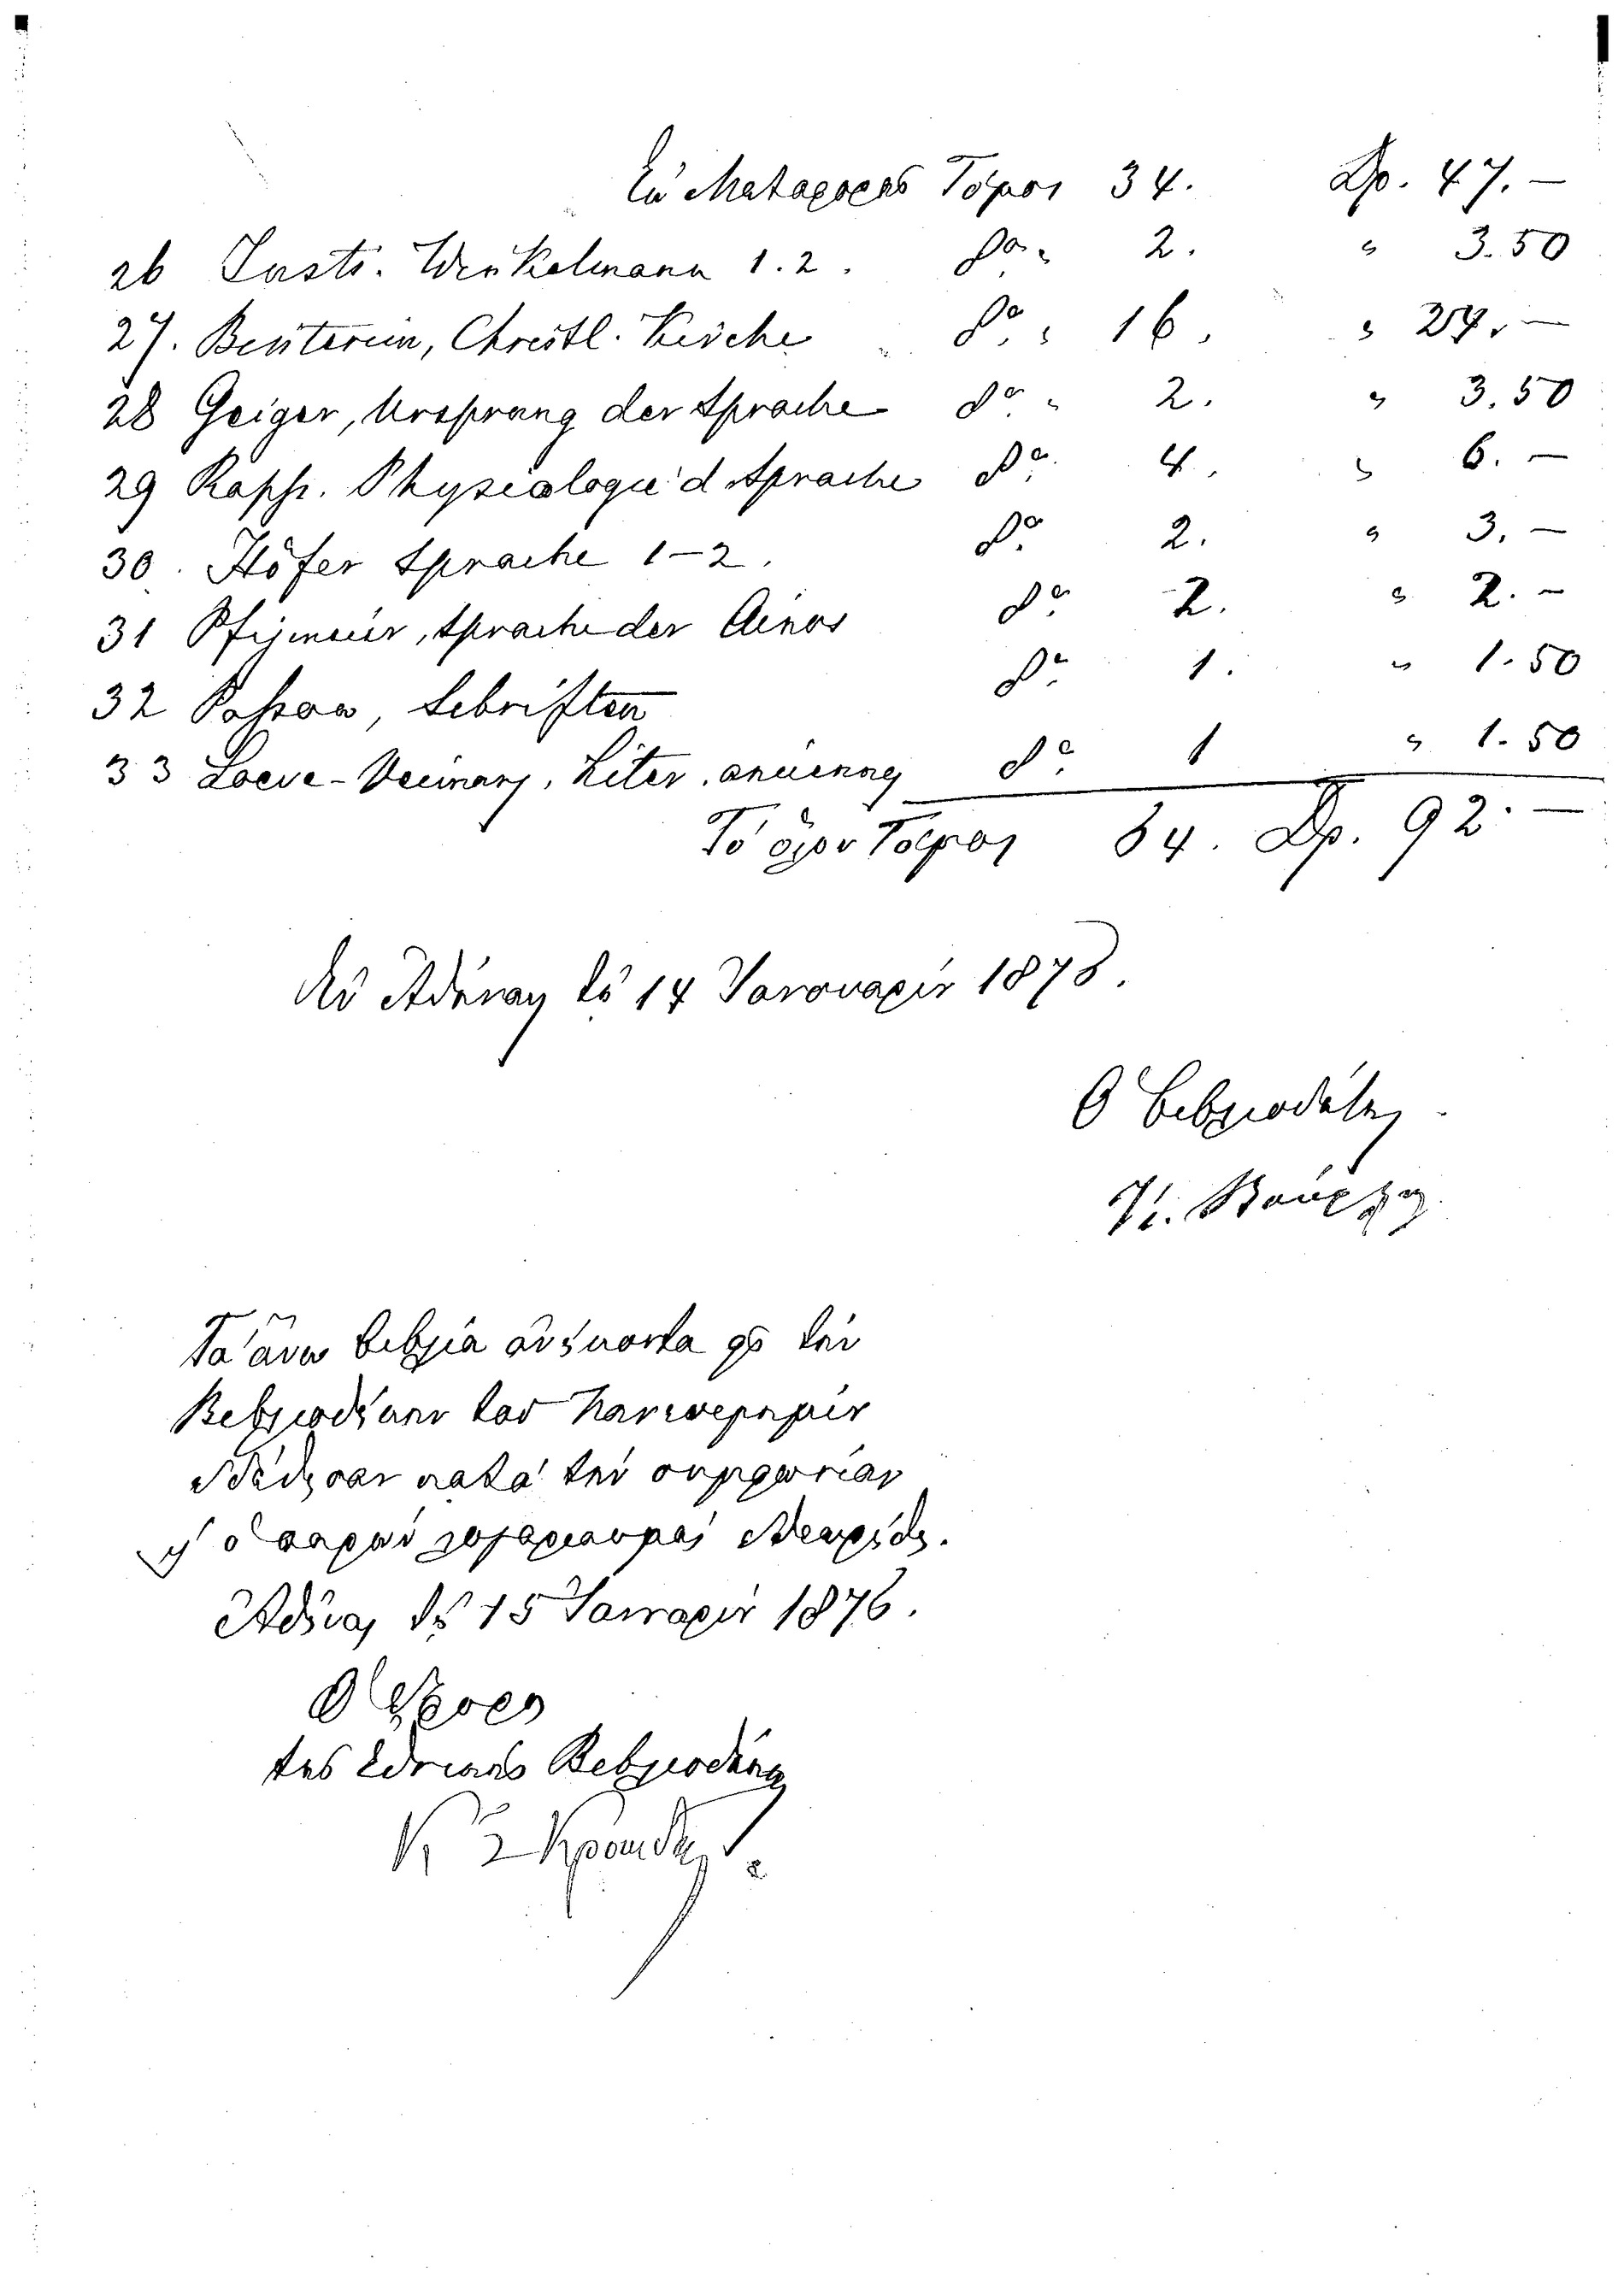 Ἐκ Μεταφορᾶς Τόμοι 34. Δρ. 47.—
26 Justi. Winkelmann 1.2. do „ 2. „ 3.50
27. Binterim, Christl. Kirche do „ 16. „ 24.—
28 Geiger, Ursprung der Sprache do „ 2. „ 3.50
29 Rapp. Physiologie d Sprache do. 4. „ 6.—
30. Höfer Sprache 1–2. do. 2. „ 3.—
31 Pfizmaier, Sprache der Ainos do. 2. „ 2.—
32 Passow, Schriften do. 1. „ 1.50
33 Loeve-Veimars, Liter. ancienne do. 1 „ 1.50
Τὸ ὅλον Τόμοι 64. Δρ. 92.—
Ἐν Ἀθήναις τῇ 14 Ἰανουαρίου 1878.
Ὁ Βιβλιοπώλης
Κ.
Τὰ ἄνω βιβλία εἰς τὴν
Βιβλιοθήκην τοῦ Πανεπιστημίου
κατὰ τὴν συμφωνίαν
ὁ παρὼν λογαριασμός
Ἀθήνας τῇ 15 Ἰανουαρίου 1878.
Ὁ Ἔφορος
τῆς Ἐθνικῆς Βιβλιοθήκης